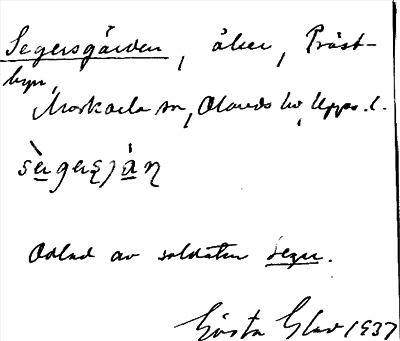 Segersgården, åker, Präst-
byn,
Morkarla sn, Olands hd, Upps. l.
Odlad av soldaten Seger.
Gösta Glav 1937